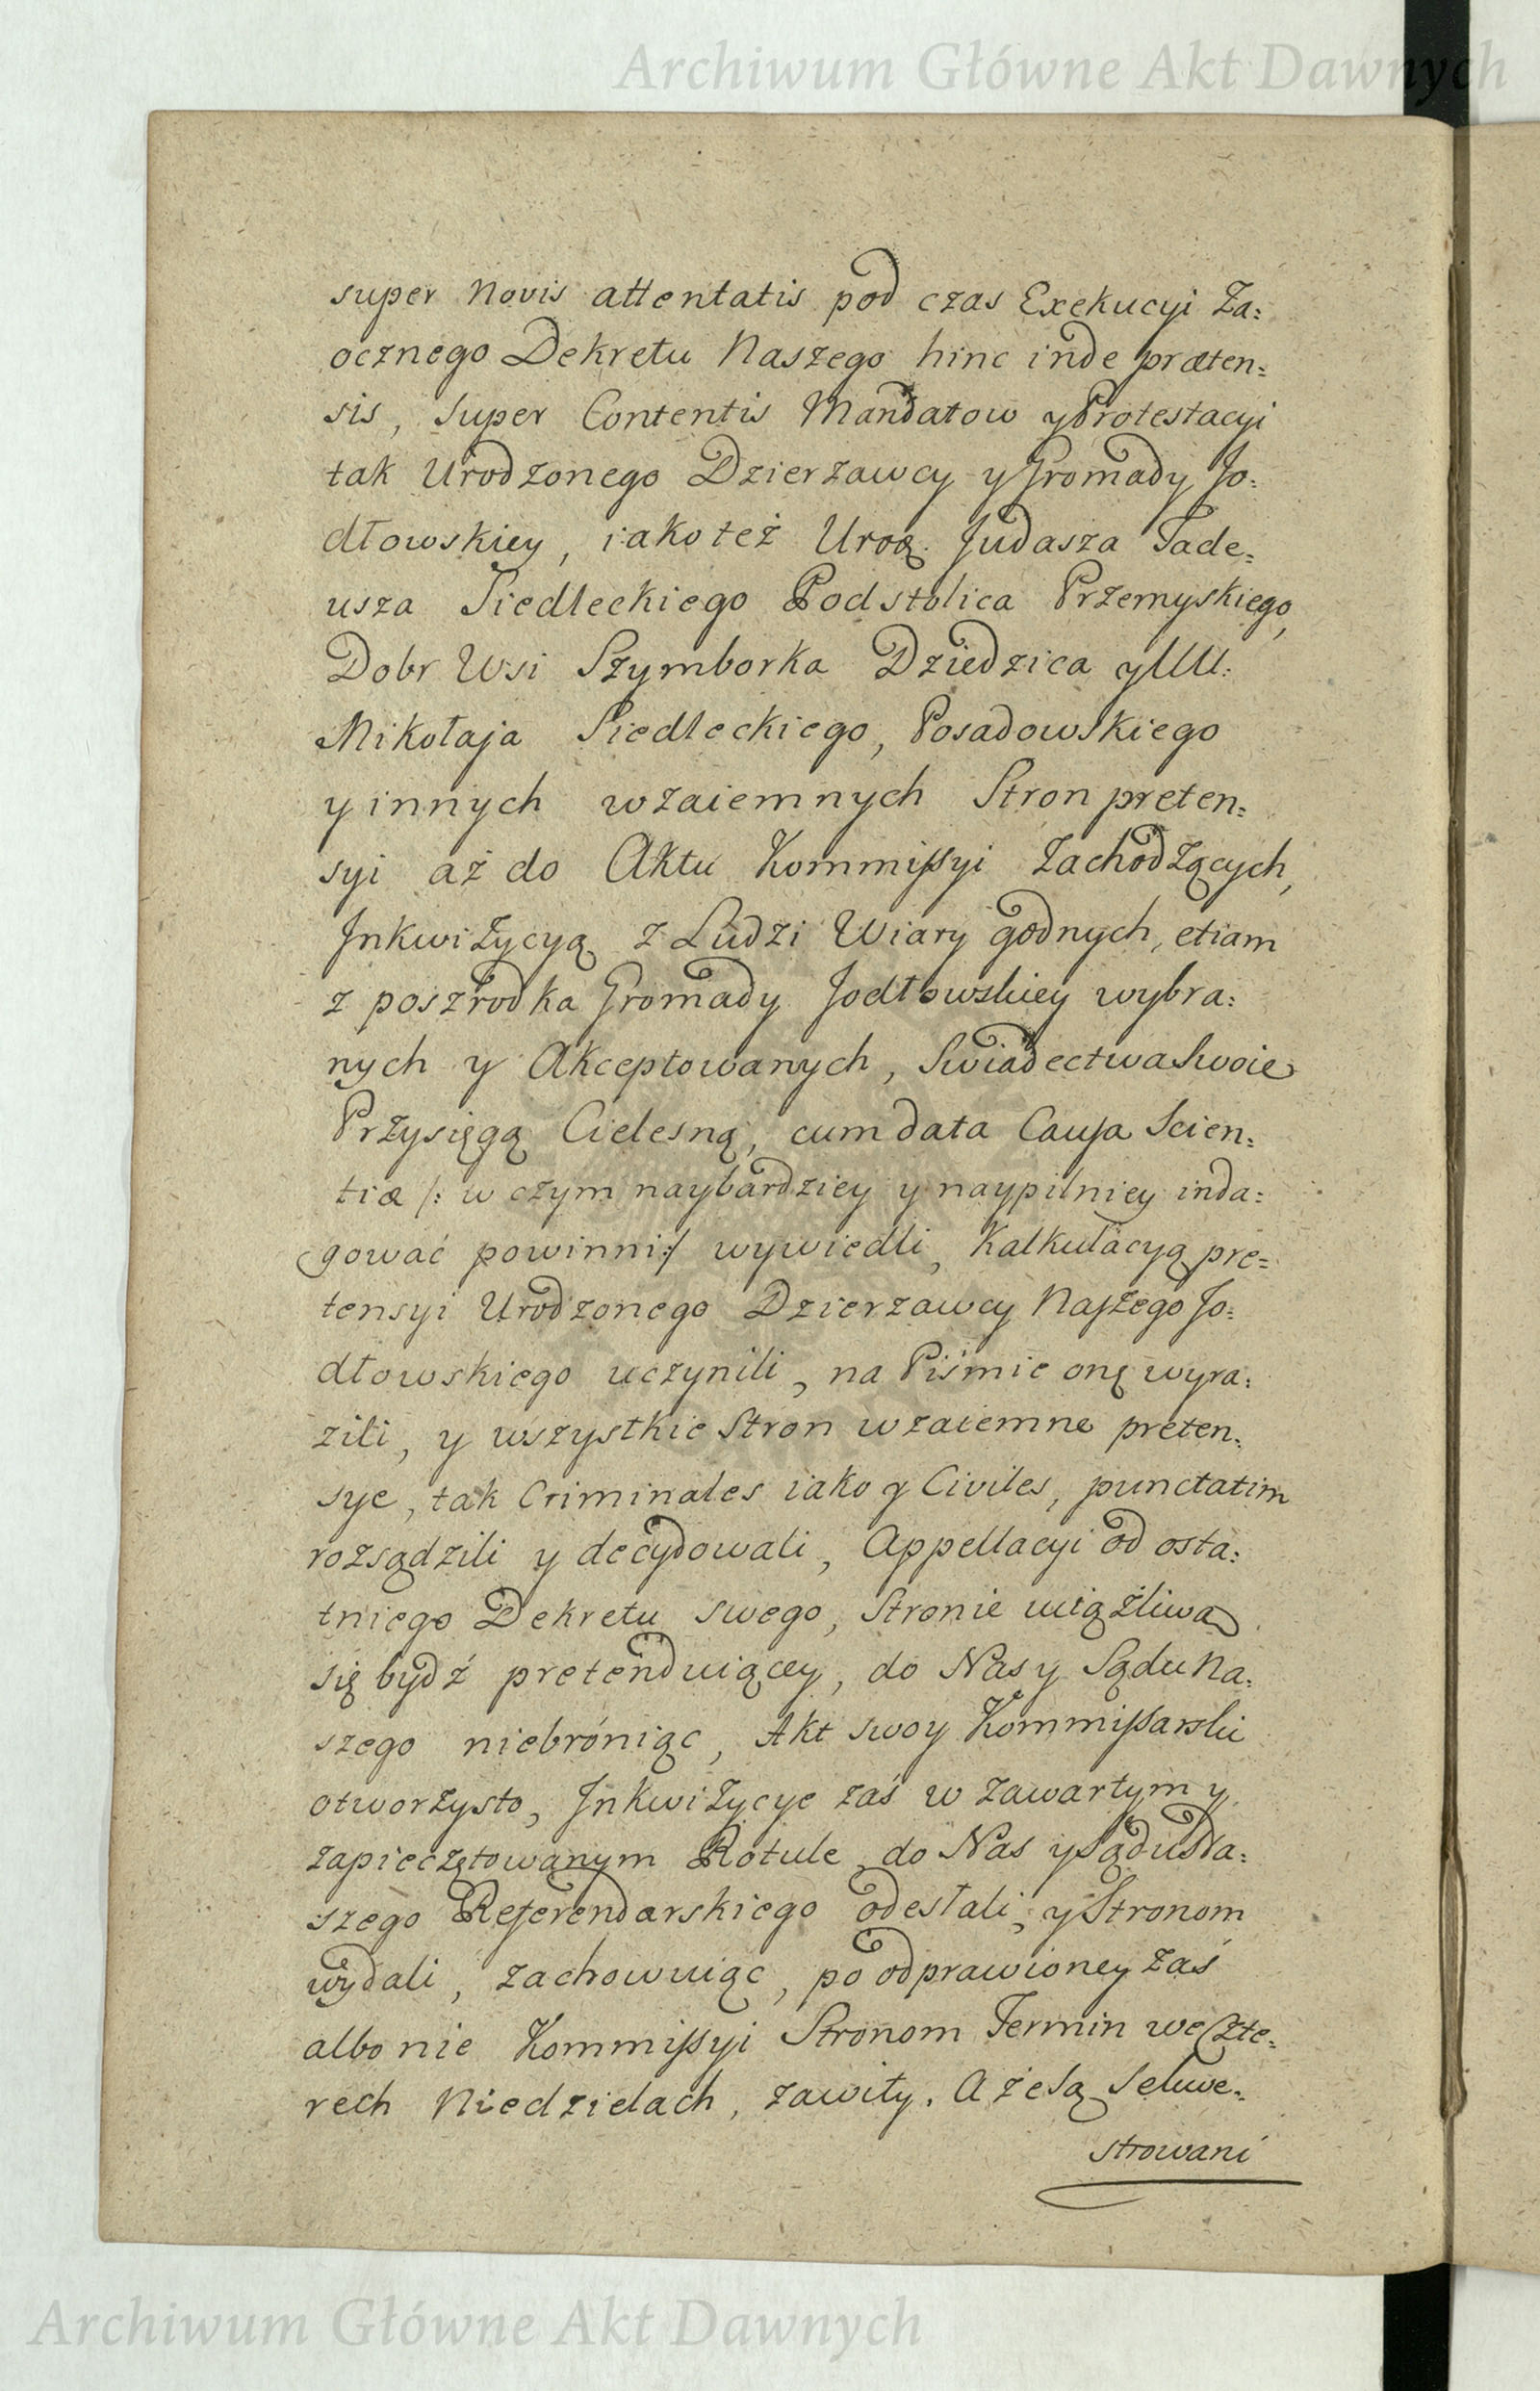 Archiwum Główne Akt Dawnych
super Novis attentatis pod czas Exekucyi Za:
ocznego Dekretu Naszego hinc inde præten:
sis, super Contentis Mandatow y Protestacyi
tak Urodzonego Dzierzawcy y Gromady Jo:
dłowskiey, iako też Judasza Tade:
usza Siedleckiego Podstolica Przemyskiego,
Dobr Wsi Szymborka Dziedzica y UU:
Mikołaja Siedleckiego, Posadowskiego
y innych wzaiemnych Stron preten:
syi aż do Aktu Kommissyi Zachodzących,
Inkwizycyą z Ludzi Wiary godnych, etiam
z poszrodka Gromady Jodłowskiey wybra:
nych y Akceptowanych, Swiadectwa Swoie
Przysięgą Cielesną, cum data Causa Scien:
tiæ /: w czym naybardziey y naypilniey inda:
gować powinni :/ wywiedli, Kalkulacyą pre:
tensyi Urodzonego Dzierzawcy Naszego Jo:
dłowskiego uczynili, na Piśmie onę wyra:
zili, y wszystkie Stron wzaiemne preten:
sye, tak Criminales iako y Civiles, punctatim
rozsądzili y decydowali, Appellacyi od osta:
tniego Dekretu swego, Stronie uciążliwą
się bydź pretenduiącey, do Nas y Sądu Na:
szego niebróniąc, Akt swoy Kommissarski
otworzysto, Inkwizycye zaś w zawartym y
zapieczętowanym Rotule do Nas y Sądu Na:
szego Referendarskiego odesłali, y Stronom
wydali, zachowuiąc, po odprawioney zaś
albo nie Kommissyi Stronom Termin we Czte:
rech Niedzielach, zawity. A że są Sekwe:
strowani
Archiwum Główne Akt Dawnych